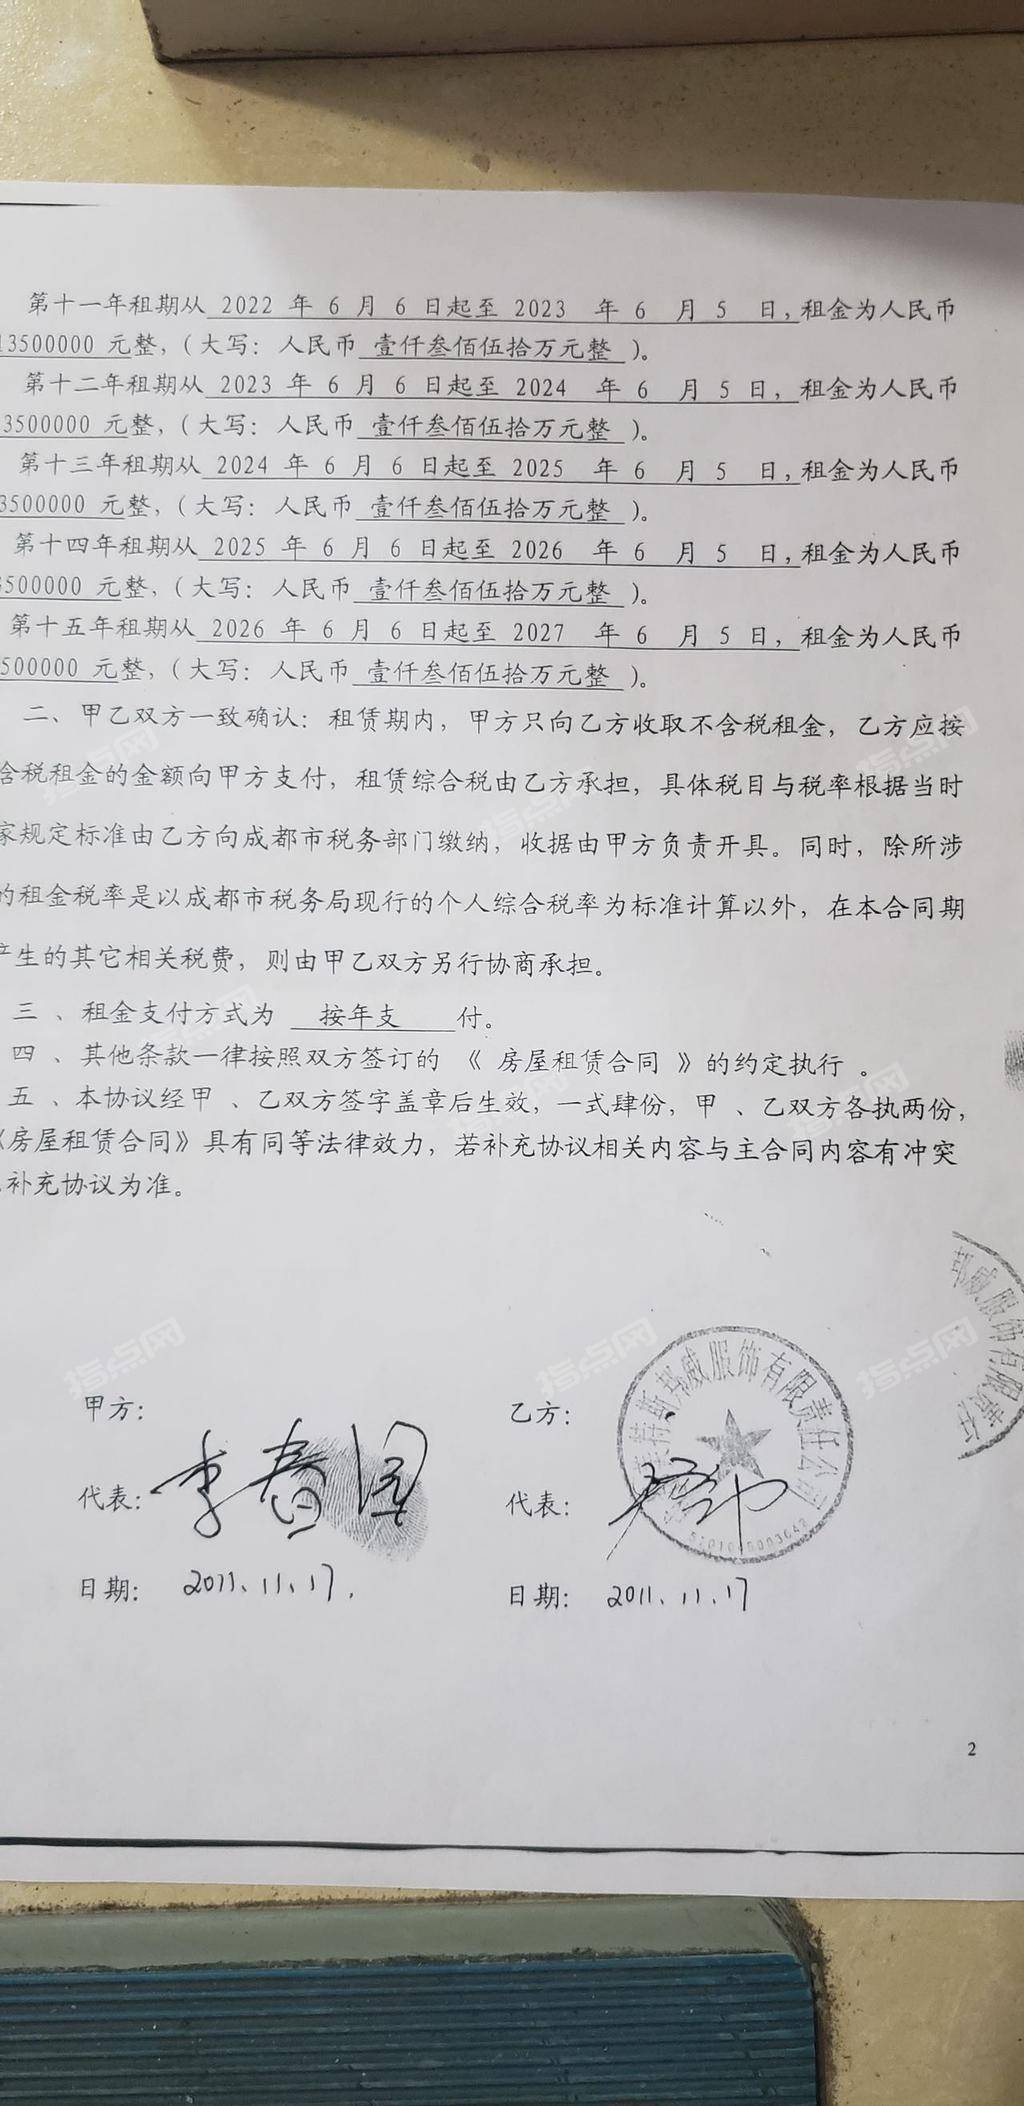 第十一年租期从 2022 年 6 月 6 日起至 2023 年 6 月 5 日，租金为人民币
13500000 元整，（大写：人民币 壹仟叁佰伍拾万元整 ）。
第十二年租期从 2023 年 6 月 6 日起至 2024 年 6 月 5 日，租金为人民币
3500000 元整，（大写：人民币 壹仟叁佰伍拾万元整 ）。
第十三年租期从 2024 年 6 月 6 日起至 2025 年 6 月 5 日，租金为人民币
3500000 元整，（大写：人民币 壹仟叁佰伍拾万元整 ）。
第十四年租期从 2025 年 6 月 6 日起至 2026 年 6 月 5 日，租金为人民币
3500000 元整，（大写：人民币 壹仟叁佰伍拾万元整 ）。
第十五年租期从 2026 年 6 月 6 日起至 2027 年 6 月 5 日，租金为人民币
500000 元整，（大写：人民币 壹仟叁佰伍拾万元整 ）。
二、甲乙双方一致确认：租赁期内，甲方只向乙方收取不含税租金，乙方应按
含税租金的金额向甲方支付，租赁综合税由乙方承担，具体税目与税率根据当时
家规定标准由乙方向成都市税务部门缴纳，收据由甲方负责开具。同时，除所涉
的租金税率是以成都市税务局现行的个人综合税率为标准计算以外，在本合同期
产生的其它相关税费，则由甲乙双方另行协商承担。
三 、租金支付方式为 按年支 付。
四 、其他条款一律按照双方签订的 《 房屋租赁合同 》的约定执行 。
五 、本协议经甲 、乙双方签字盖章后生效，一式肆份，甲 、乙双方各执两份，
《房屋租赁合同》具有同等法律效力，若补充协议相关内容与主合同内容有冲突
补充协议为准。
甲方： 乙方：
斯邦威服饰有限责任公司
邦威服饰有限责任公
代表：李春国 代表：
日期： 2011.11.17. 日期： 2011.11.17
2
指点网